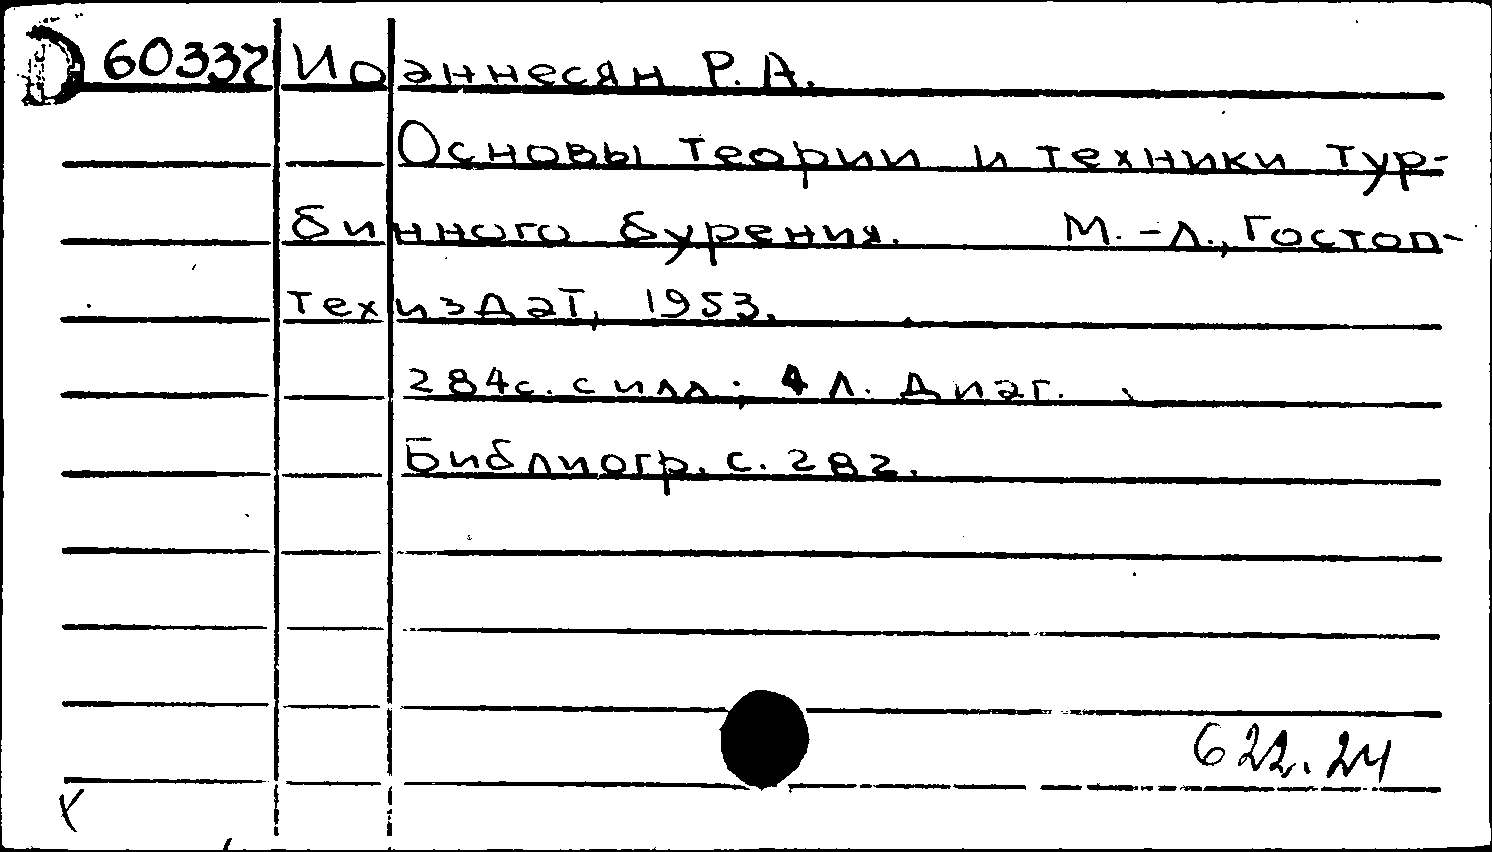 60337 Иоаннесян Р. А.
Основы теории и техники тур-
бинного бурения. М.-Л., Гостоп-
техиздат, 1953.
284с. с илл.; 4 л. диаг.
Библиогр. с. 282.
622.24